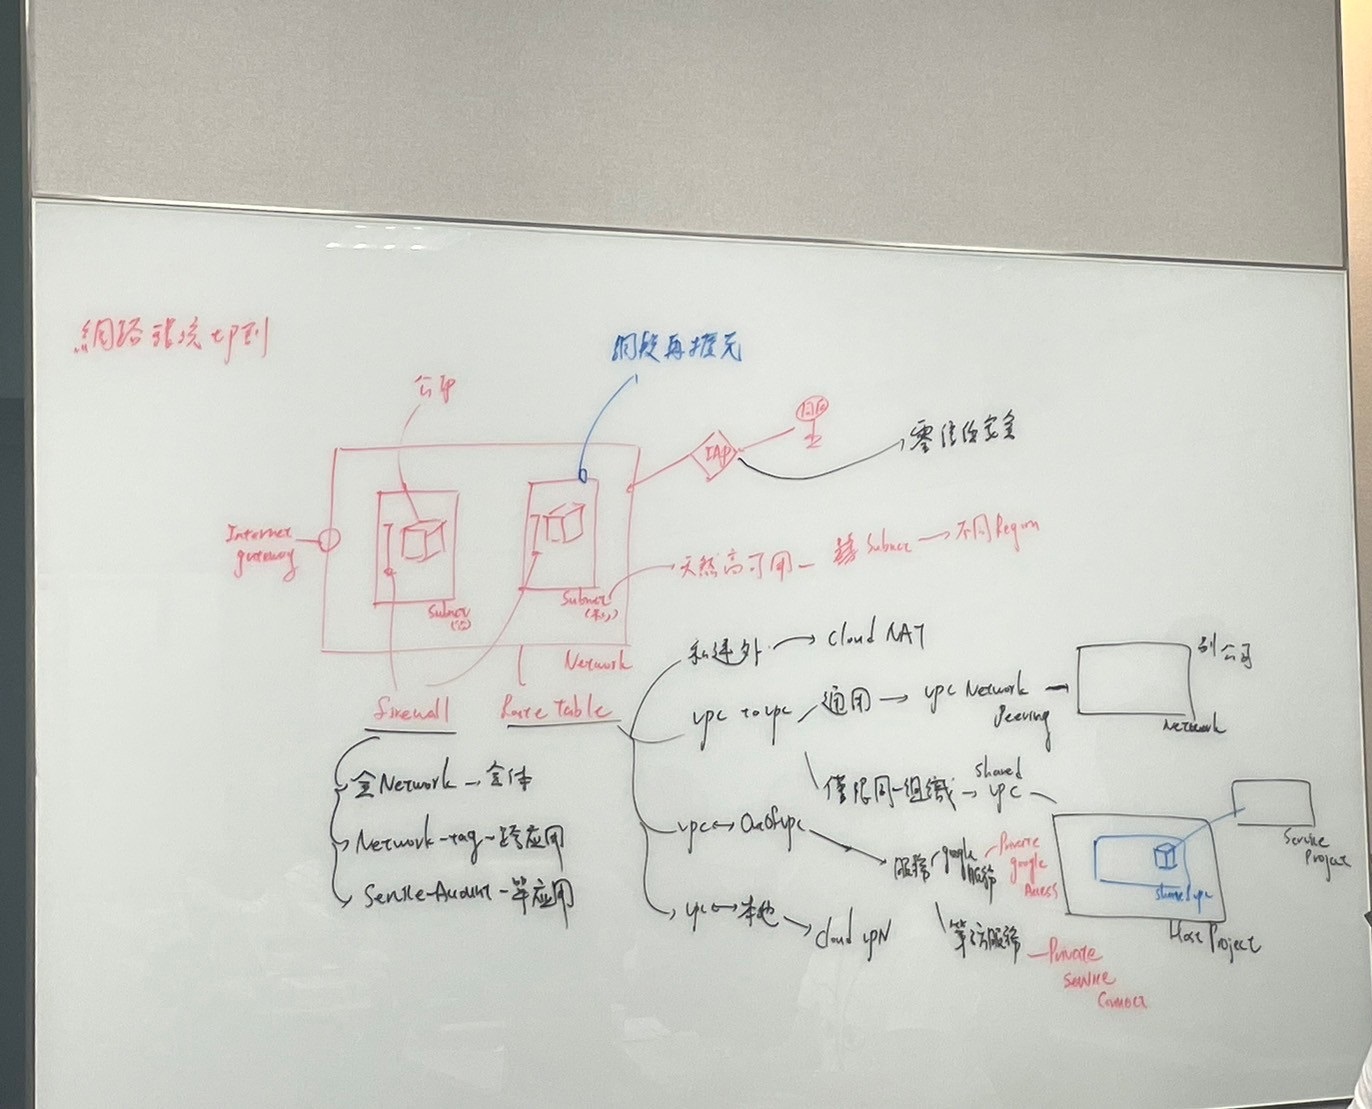 網路環境切割
網段再擴充
公IP
IAP
零信任安全
Internet
gateway
Subnet
(公)
Subnet
(私)
天然高可用 - 跨 Subnet → 不同 Region
Network
Firewall
Route Table
全 Network - 全体
Network-tag - 跨应用
Service-Account - 單应用
私連外 → Cloud NAT
vpc to vpc
通用 → vpc Network
Peering
別公司
Network
僅限同一組織 → shared
vpc
Service
Project
shared vpc
Host Project
vpc ↔ Out of vpc
服務
google
服務
Private
google
Access
第三方服務
Private
Service
Connect
vpc ↔ 本地 → Cloud VPN